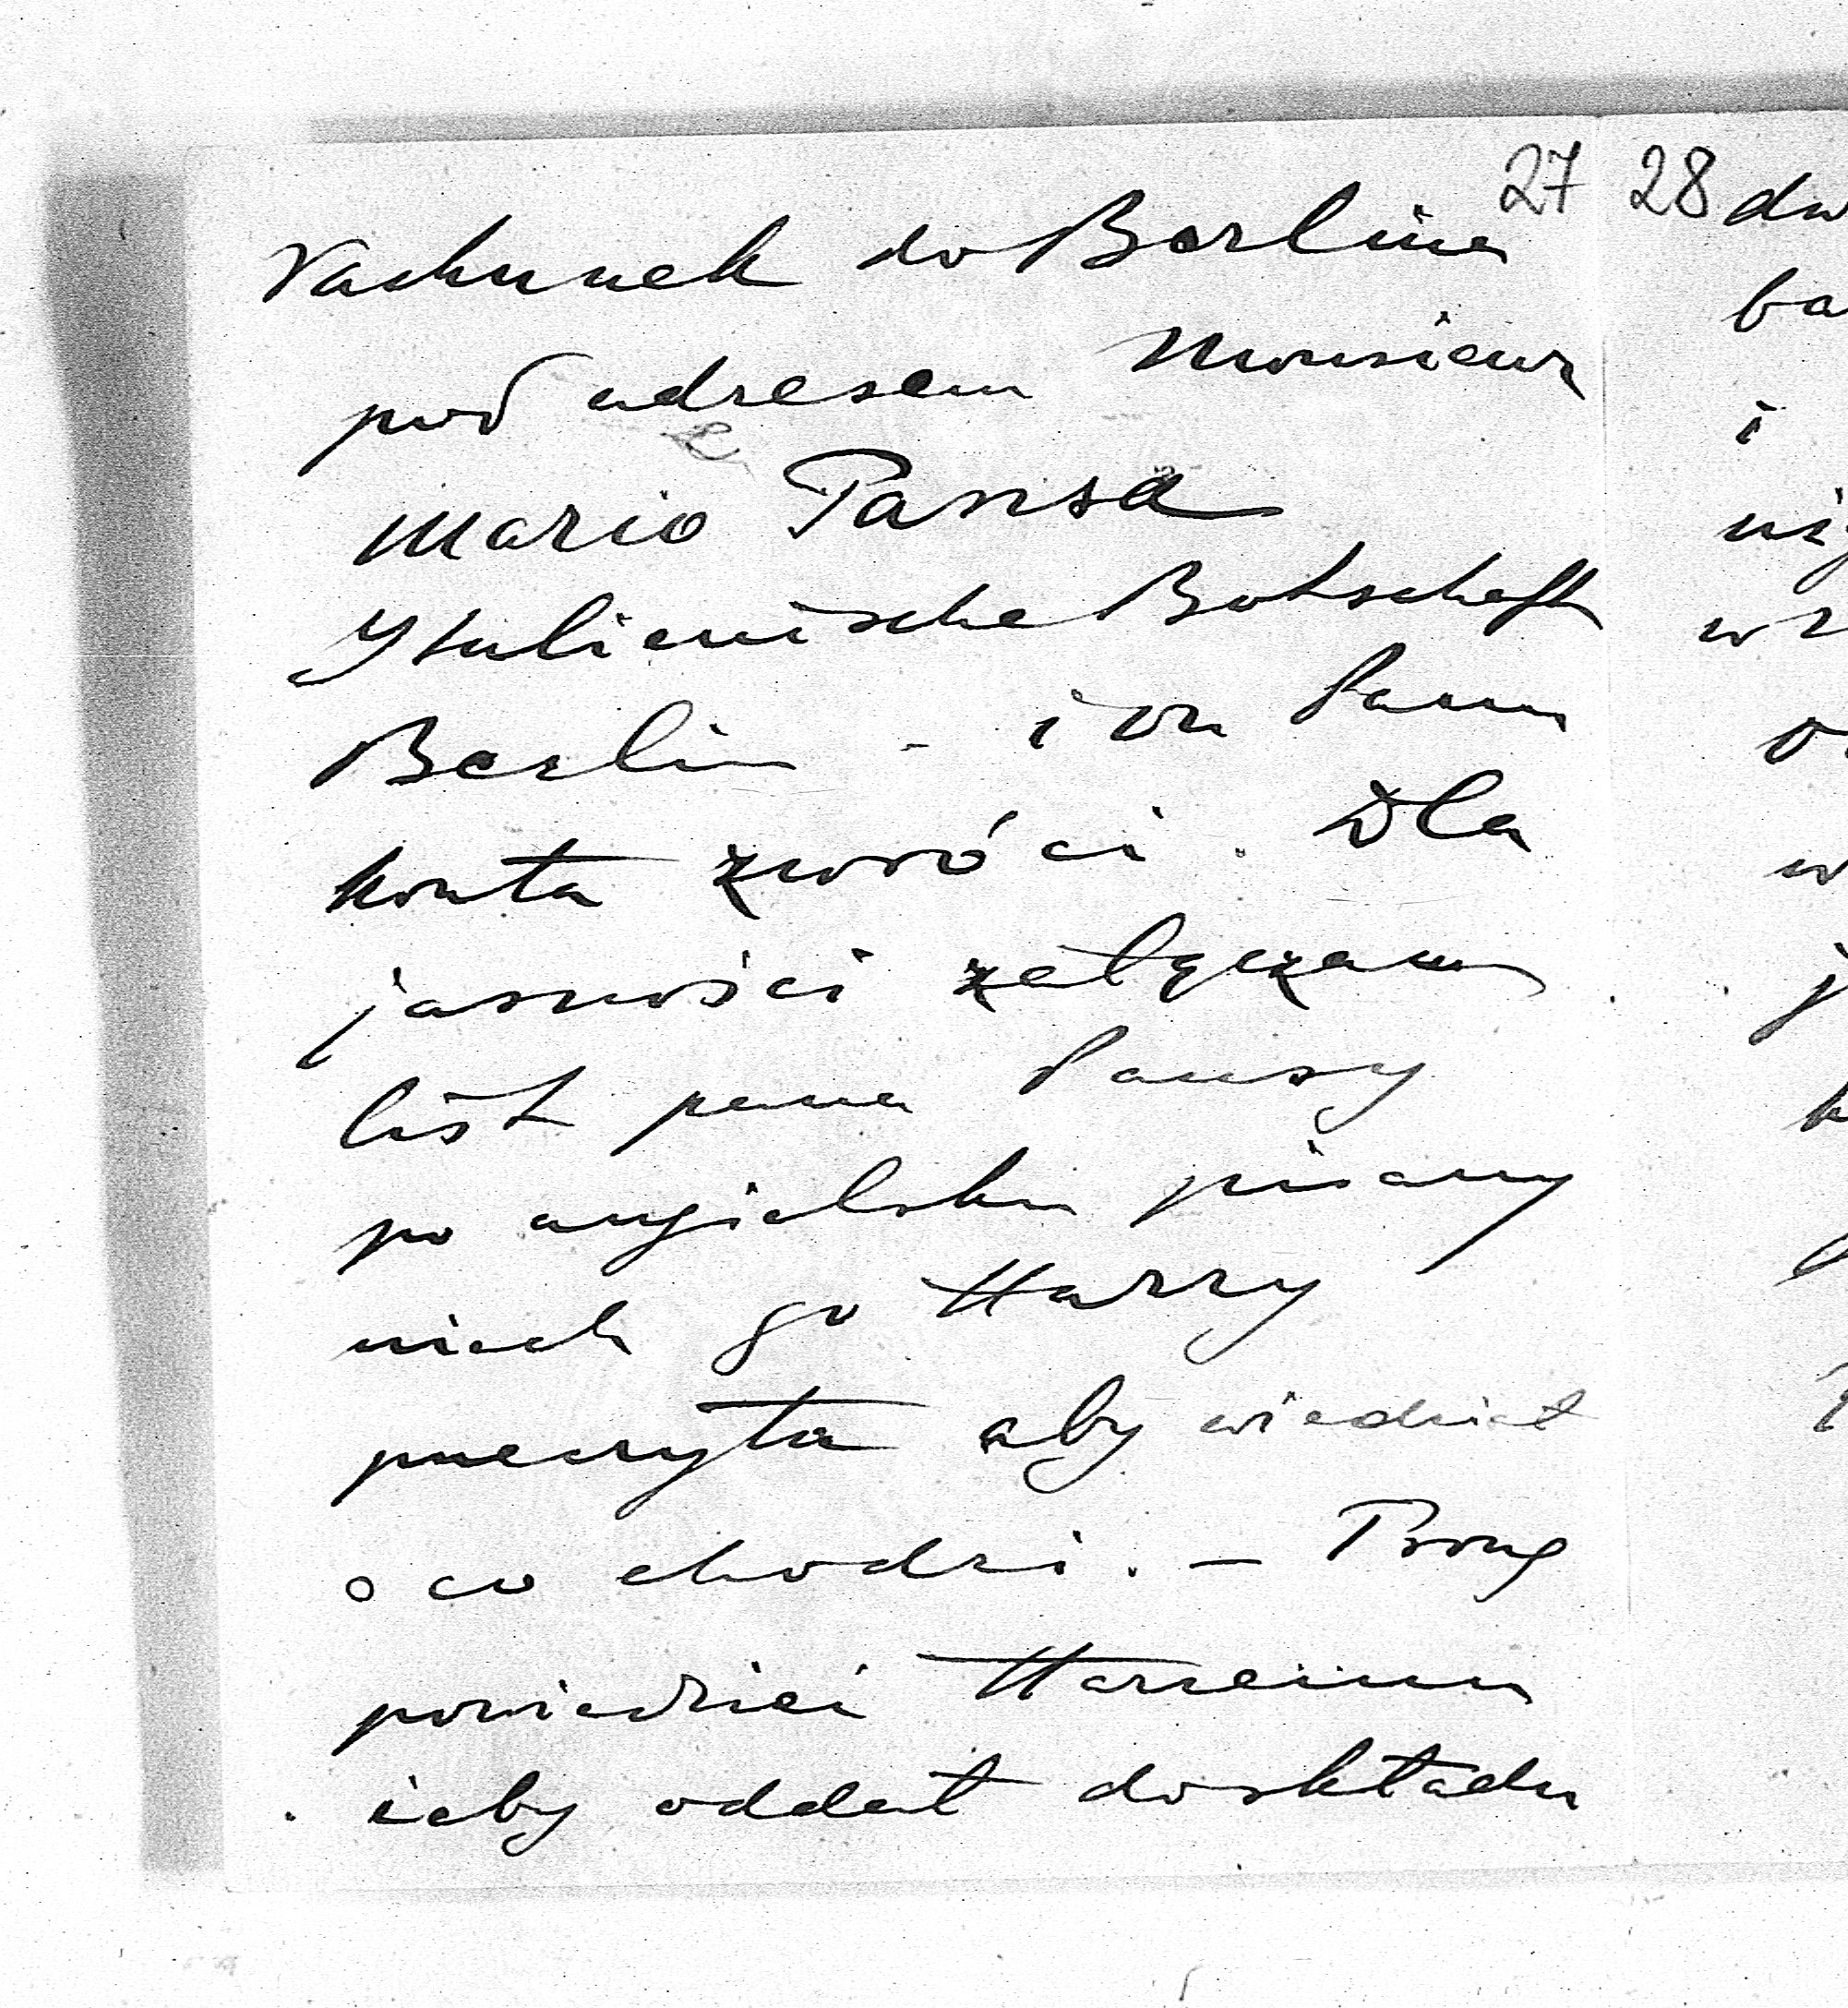 27 28
rachunek do Berlina
pod adresem Monsieur
Mario Pansa
Italienische Botschaft
Berlin - i on Panu
konta zwróci. Dla
jasności załączam
list pana Pansy
po angielsku pisany
niech go Harry
przeczyta aby wiedział
o co chodzi. - Proszę
powiedzieć Harremu
żeby oddał do składu